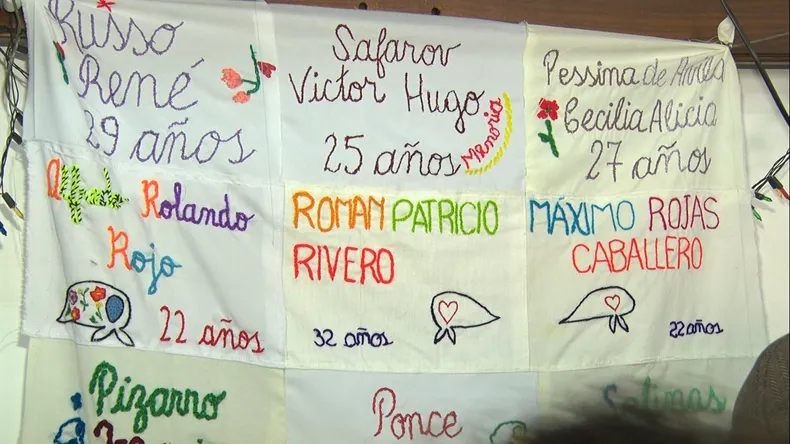 Russo
René
29 años
Safarov
Victor Hugo
25 años
Memoria
Pessina de
Cecilia Alicia
27 años
Rolando
Rojo
22 años
ROMAN PATRICIO
RIVERO
32 años
MÁXIMO ROJAS
CABALLERO
22 años
Pizarro
Ponce
Salinas